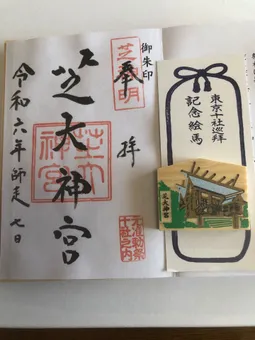 東京十社巡拝
記念絵馬
芝大神宮
御朱印
奉拝
芝神明
芝大神宮
芝大神宮
元准勅祭
十社之内
令和六年師走七日